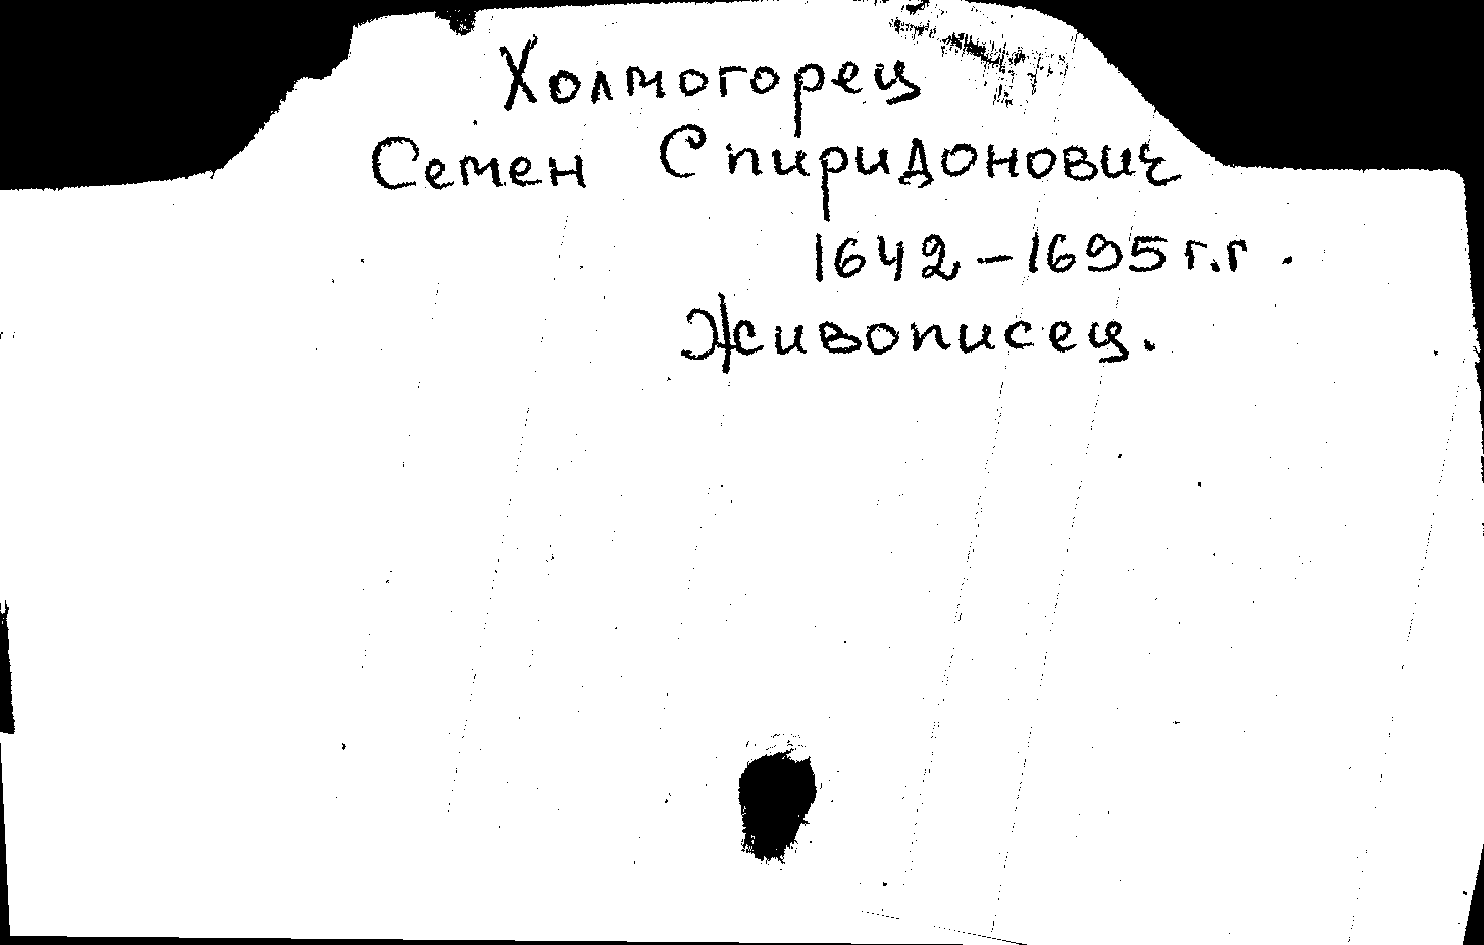 Холмогорец
Семен Спиридонович
1642-1695 г.г.
Живописец.